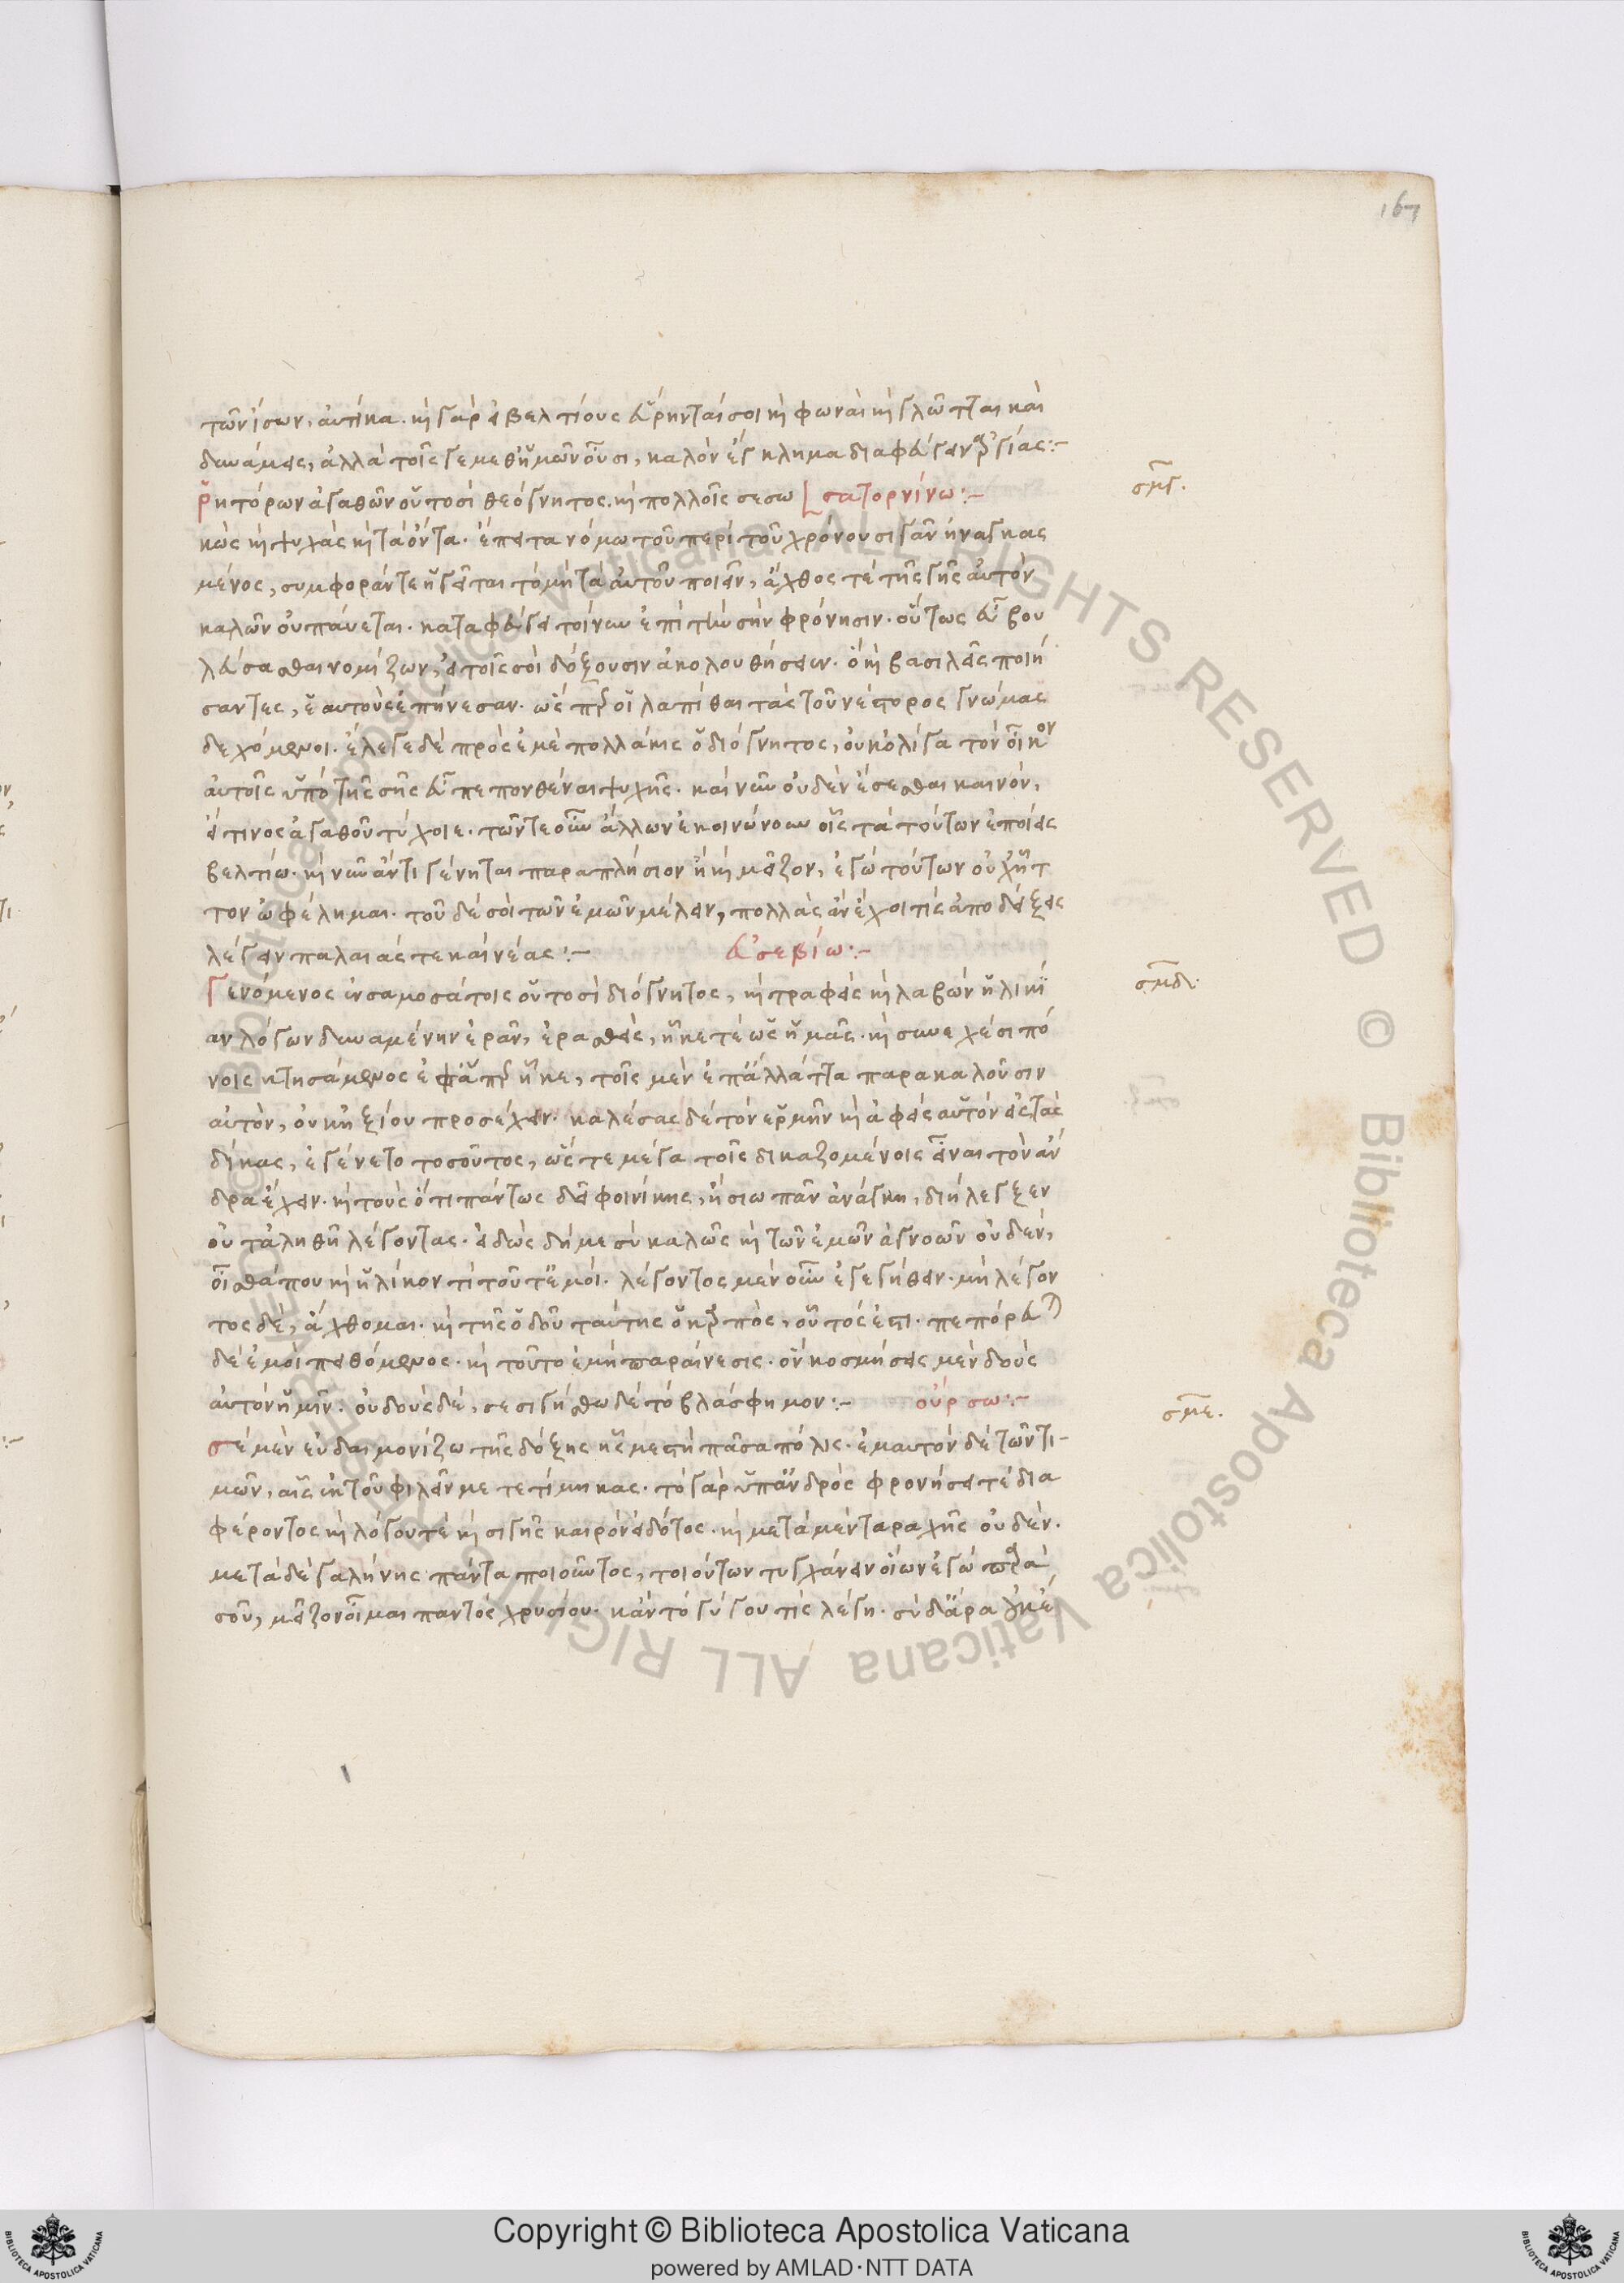 167
τῶν ἴσων, αὐτίκα. καὶ γὰρ εἰ βελτίους εὕρηνταί σοι καὶ φωναὶ καὶ γλῶτται καὶ
δυνάμεις, ἀλλὰ τοῖς γε μεθ' ἡμῶν οὖσι, καλὸν ἔγκλημα διαφεύγειν ἀργίας:-
σμγ.
ῥητόρων ἀγαθῶν οὑτοσὶ θεόγνητος. καὶ πολλοῖς σεσω [σατορνίνω:-
κὼς καὶ ψυχὰς καὶ τὰ ὄντα. ἔπειτα νόμω τοῦ περὶ τοῦ χρόνου σιγᾶν ἠναγκασ
μένος, συμφοράν τε ἡγεῖται τὸ μὴ τὰ αὑτοῦ ποιεῖν, ἄχθος τὲ τῆς γῆς αὑτὸν
καλῶν οὐ παύεται. καταφεύγει τοίνυν ἐπὶ τὴν σὴν φρόνησιν. οὕτως εὖ βου
λεύσασθαι νομίζων, εἰ τοῖς σοὶ δόξουσιν ἀκολουθήσειεν. ὃ καὶ βασιλεῖς ποιή
σαντες, ἑαυτοὺς ἐπήνεσαν. ὥσπερ οἱ λαπίθαι τὰς τοῦ νέστορος γνώμας
δεχόμενοι. ἔλεγε δὲ πρὸς ἐμὲ πολλάκις ὁ διόγνητος, οὐκ ὀλίγα τὸν οἶκον
αὐτοῖς ὑπὸ τῆς σῆς εὖ πεπονθέναι ψυχῆς. καὶ νῦν οὐδὲν ἔσεσθαι καινόν,
εἴ τινος ἀγαθοῦ τύχοιε. τῶν τε οὖν ἄλλων ἐκοινώνουν οἷς τὰ τούτων ἐποίεις
βελτίω. καὶ νῦν ἄν τι γένηται παραπλήσιον ἢ καὶ μεῖζον, ἐγὼ τούτων οὐχ ἧτ
τον ὠφέλημαι. τοῦ δέ σοι τῶν ἐμῶν μέλειν, πολλὰς ἂν ἔχοι τίς ἀποδείξεις
λέγειν παλαιάς τε καὶ νέας:- εὐσεβίω:-
σμδ.
Γενόμενος ἐν σαμοσάτοις οὑτοσὶ διόγνητος, καὶ τραφεὶς καὶ λαβὼν ἡλικί
αν λόγων δυναμένην ἐρᾶν, ἐρασθεὶς, ἧκε τὲ ὡς ἡμᾶς. καὶ συνεχέσι πό
νοις κτησάμενος ἐφ' ἅπερ ἧκε, τοῖς μὲν ἐπ' ἄλλάττα παρακαλοῦσιν
αὐτὸν, οὐκ ἠξίου προσέχειν. καλέσας δὲ τὸν ἑρμῆν καὶ ἀφεὶς αὑτὸν εἰς τὰς
δίκας, ἐγένετο τοσοῦτος, ὥς τε μέγα τοῖς δικαζομένοις εἶναι τὸν ἄν
δρα ἔχειν. καὶ τοὺς ὅτι πάντως δεῖ φοινίκης, ἢ σιωπᾶν ἀνάγκη, διήλεγξεν
οὐ τἀληθῆ λέγοντας. εἰδὼς δή με σὺ καλῶς καὶ τῶν ἐμῶν ἀγνοῶν οὐδὲν,
οἶσθά που καὶ ἡλίκον τί τοῦτ' ἐμοί. λέγοντος μὲν οὖν ἐγεγήθειν. μὴ λέγον
τος δὲ, ἄχθομαι. καὶ τῆς ὁδοῦ ταύτης ὁ καρπὸς, οὗτός ἐστι. πεπόρευται
δὲ ἐμοὶ πειθόμενος. καὶ τοῦτο ἐμὴ παραίνεσις. ὃν κοσμήσεις μὲν δοὺς
αὑτὸν ἡμῖν. οὐ δοὺς δὲ, σεσιγήσθω δὲ τὸ βλάσφημον:- οὔρσω:-
σμε.
σὲ μὲν εὐδαιμονίζω τῆς δόξης ἧς μεστὴ πᾶσα πόλις. ἐμαυτὸν δὲ τῶν τι-
μῶν, αἷς ἐκ τοῦ φιλεῖν με τετίμηκας. τὸ γὰρ ὑπ' ἀνδρὸς φρονήσει τὲ δια
φέροντος καὶ λόγου τὲ καὶ σιγῆς καιρὸν εἰδότος. καὶ μετὰ μὲν ταραχῆς οὐδὲν.
μετὰ δὲ γαλήνης πάντα ποιοῦντος, τοιούτων τυγχάνειν οἵων ἐγὼ παρὰ
σοῦ, μεῖζον οἶμαι παντὸς χρυσίου. κἂν τὸ γύγου τὶς λέγη. σὺ δ' ἄρα